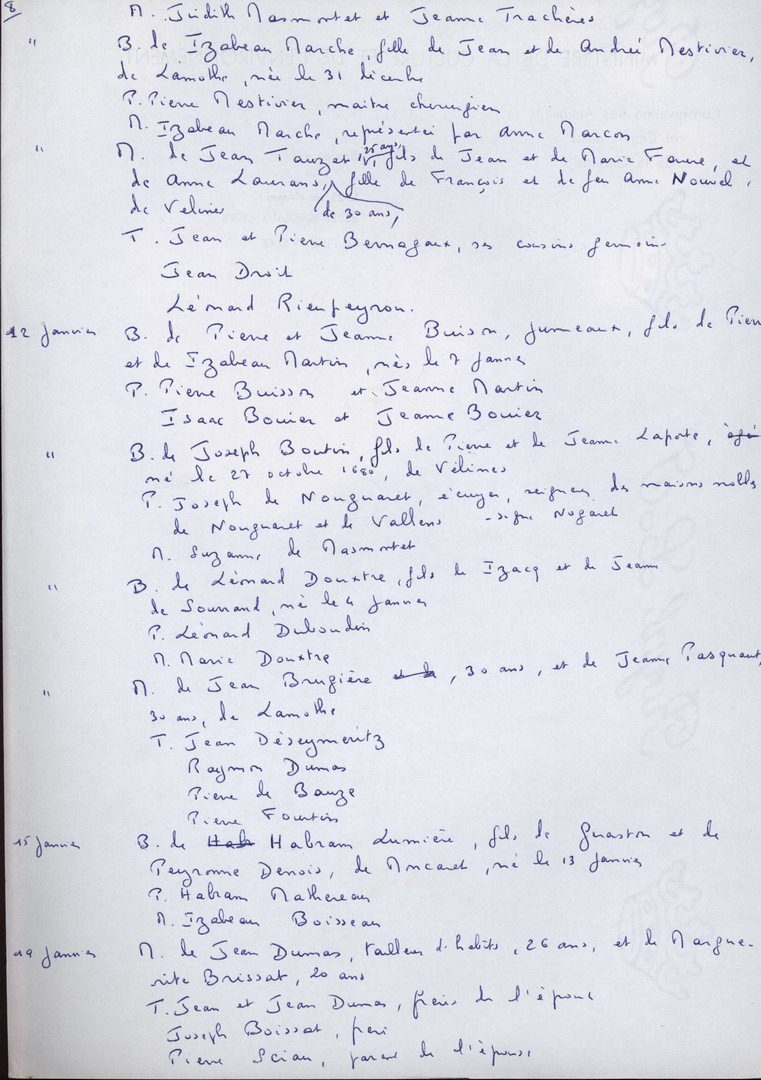 8
M. Judith Masmontet et Jeanne Trachères
" B. de Izabeau Marche, fille de Jean et de Andrée Mestivier,
de Lamothe, née le 31 décembre
P. Pierre Mestivier, maitre chirurgien
M. Izabeau Marche, représentée par Anne Marcon
" M. de Jean Tauzet, 25 ans, fils de Jean et de Marie Faure, et
de Anne Laurans, fille de François et de feu Anne Nouvel,
de Vélines de 30 ans,
T. Jean et Pierre Bernageau, ses cousins germains
Jean Droit
Léonard Rieupeyron.
12 Janvier B. de Pierre et Jeanne Buisson, jumeaux, fils de Pierre
et de Izabeau Martin, nés le 7 janvier
P. Pierre Buisson et Jeanne Martin
Isaac Bouier et Jeanne Bouier
" B. de Joseph Boutin, fils de Pierre et de Jeanne Laporte, âgé
né le 27 octobre 1680, de Vélines
P. Joseph de Nougnaret, écuyer, seigneur des maisons nobles
de Nougnaret et de Vallens - signe Nogaret
M. Suzanne de Masmontet
" B. de Léonard Douxtre, fils de Izacq et de Jeanne
de Sournand, né le 4 janvier
P. Léonard Duboudin
M. Marie Douxtre
" M. de Jean Brugière et de, 30 ans, et de Jeanne Pasquaut,
30 ans, de Lamothe
T. Jean Déseymeritz
Raymon Dumas
Pierre de Bauze
Pierre Fourtin
15 Janvier B. de Hab Habram Lumière, fils de Guaston et de
Peyronne Denois, de Moncaret, né le 13 janvier
P. Habram Mathereau
M. Izabeau Boisseau
19 Janvier M. de Jean Dumas, tailleur d'habits, 26 ans, et de Margue-
rite Brissat, 20 ans
T. Jean et Jean Dumas, frères de l'époux
Joseph Boissat, frère
Pierre Sciau, parent de l'épouse